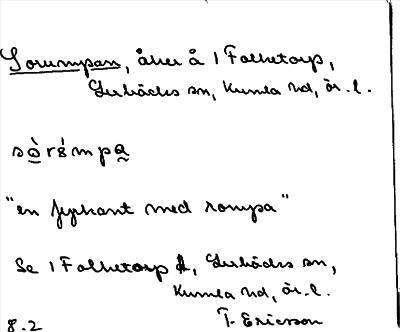 Sorumpan, åker å 1 Folketorp,
Lerbäcks sn, Kumla hd, ör. l.
sò̱rúmpa̰
"en fyrkant med rompa"
Se 1 Folketorp A, Lerbäcks sn,
Kumla hd, ör. l.
8.2 T. Ericsson